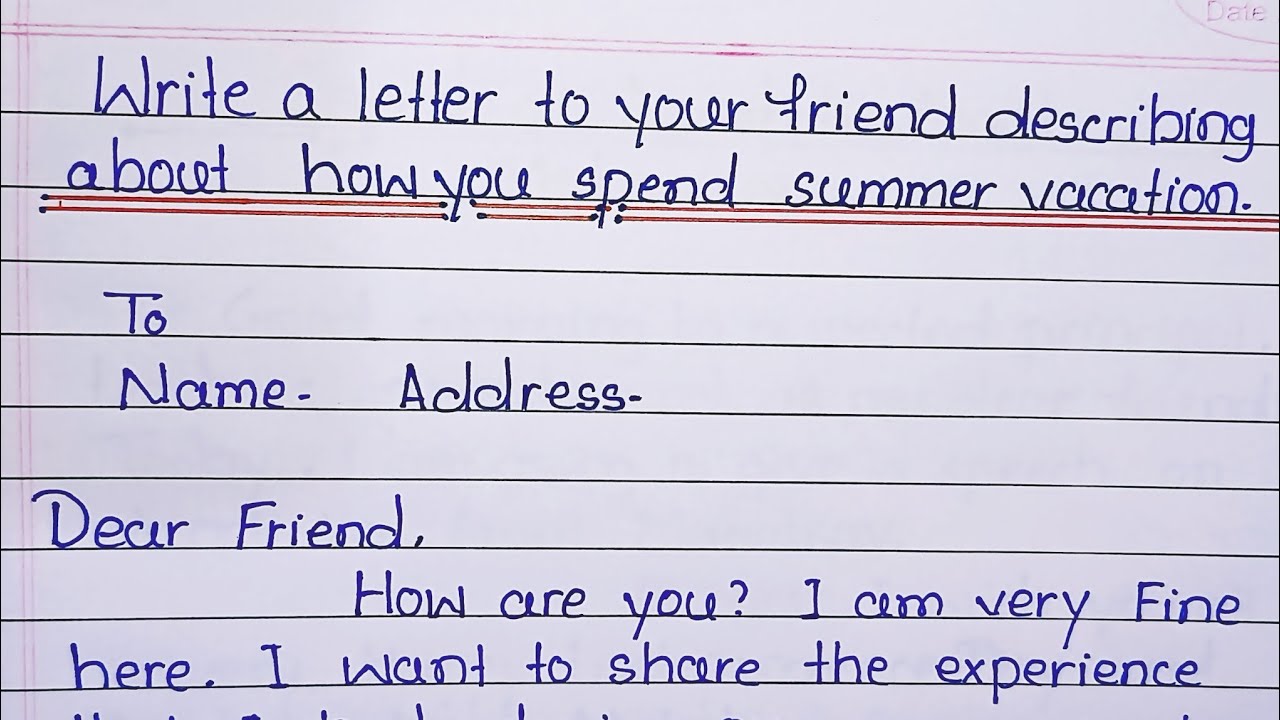 Date
Write a letter to your friend describing
about how you spend summer vacation.
To
Name- Address-
Dear Friend,
How are you? I am very Fine
here. I want to share the experience